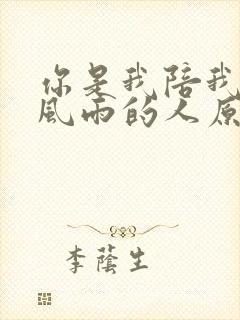 你是我陪我
風雨的人原
李蔭生